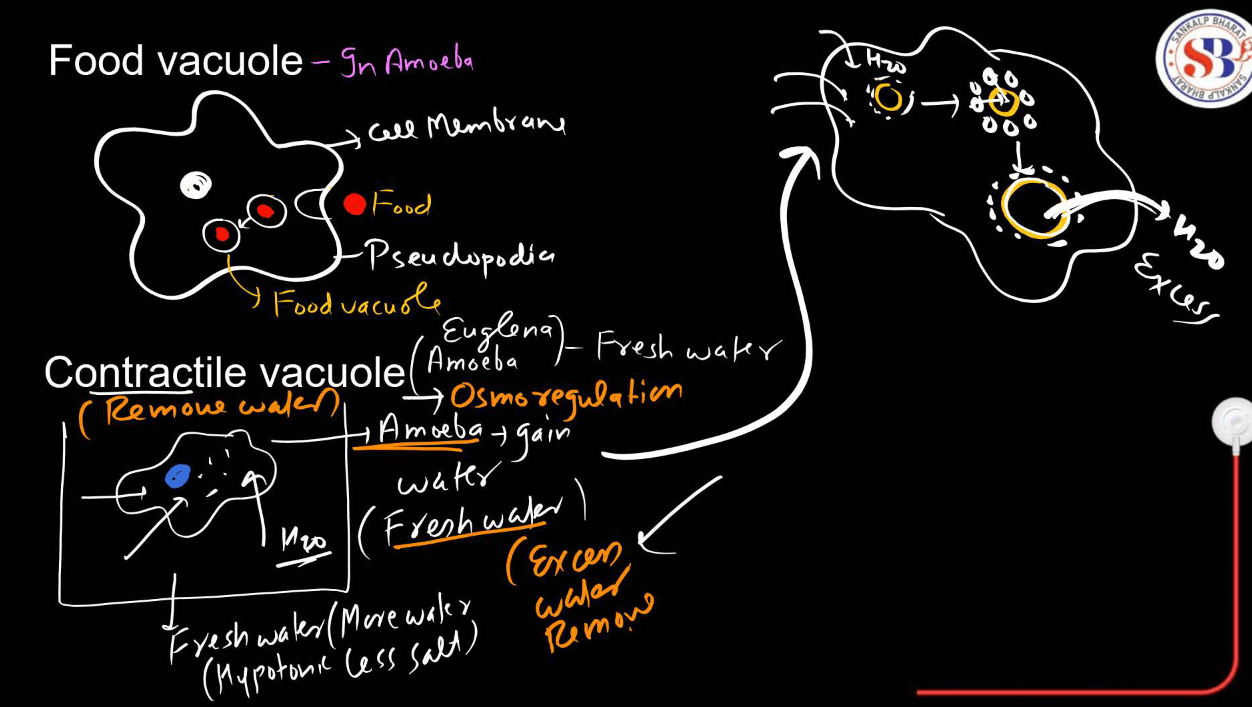 Food vacuole - In Amoeba
Cell Membrane
Food
Pseudopodia
Food vacuole
Contractile vacuole
(Euglena
Amoeba) - Fresh water
→ Osmoregulation
(Remove water)
Amoeba → gain
water
(Fresh water)
H2O
(Excess
water
Remove
Fresh water (More water
(Hypotonic Less salt)
H2O
H2O
Exces
SANKALP BHARAT
SB
SANKALP BHARAT